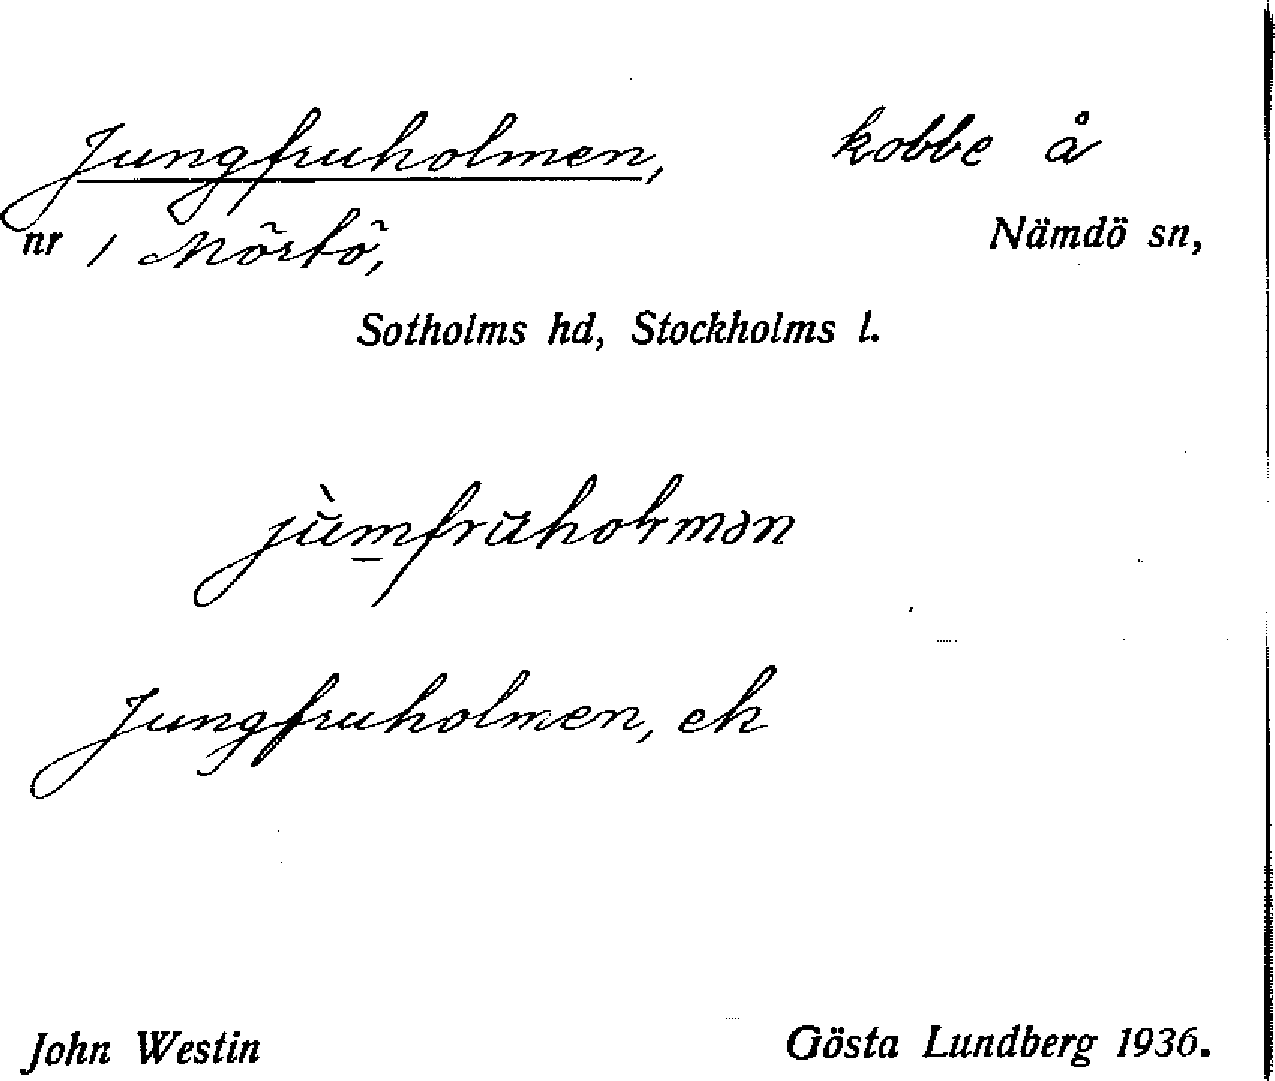 Jungfruholmen, kobbe å
nr 1 Mörtö, Nämdö sn,
Sotholms hd, Stockholms l.
jùm̲frūholmən
Jungfruholmen, ek
John Westin Gösta Lundberg 1936.